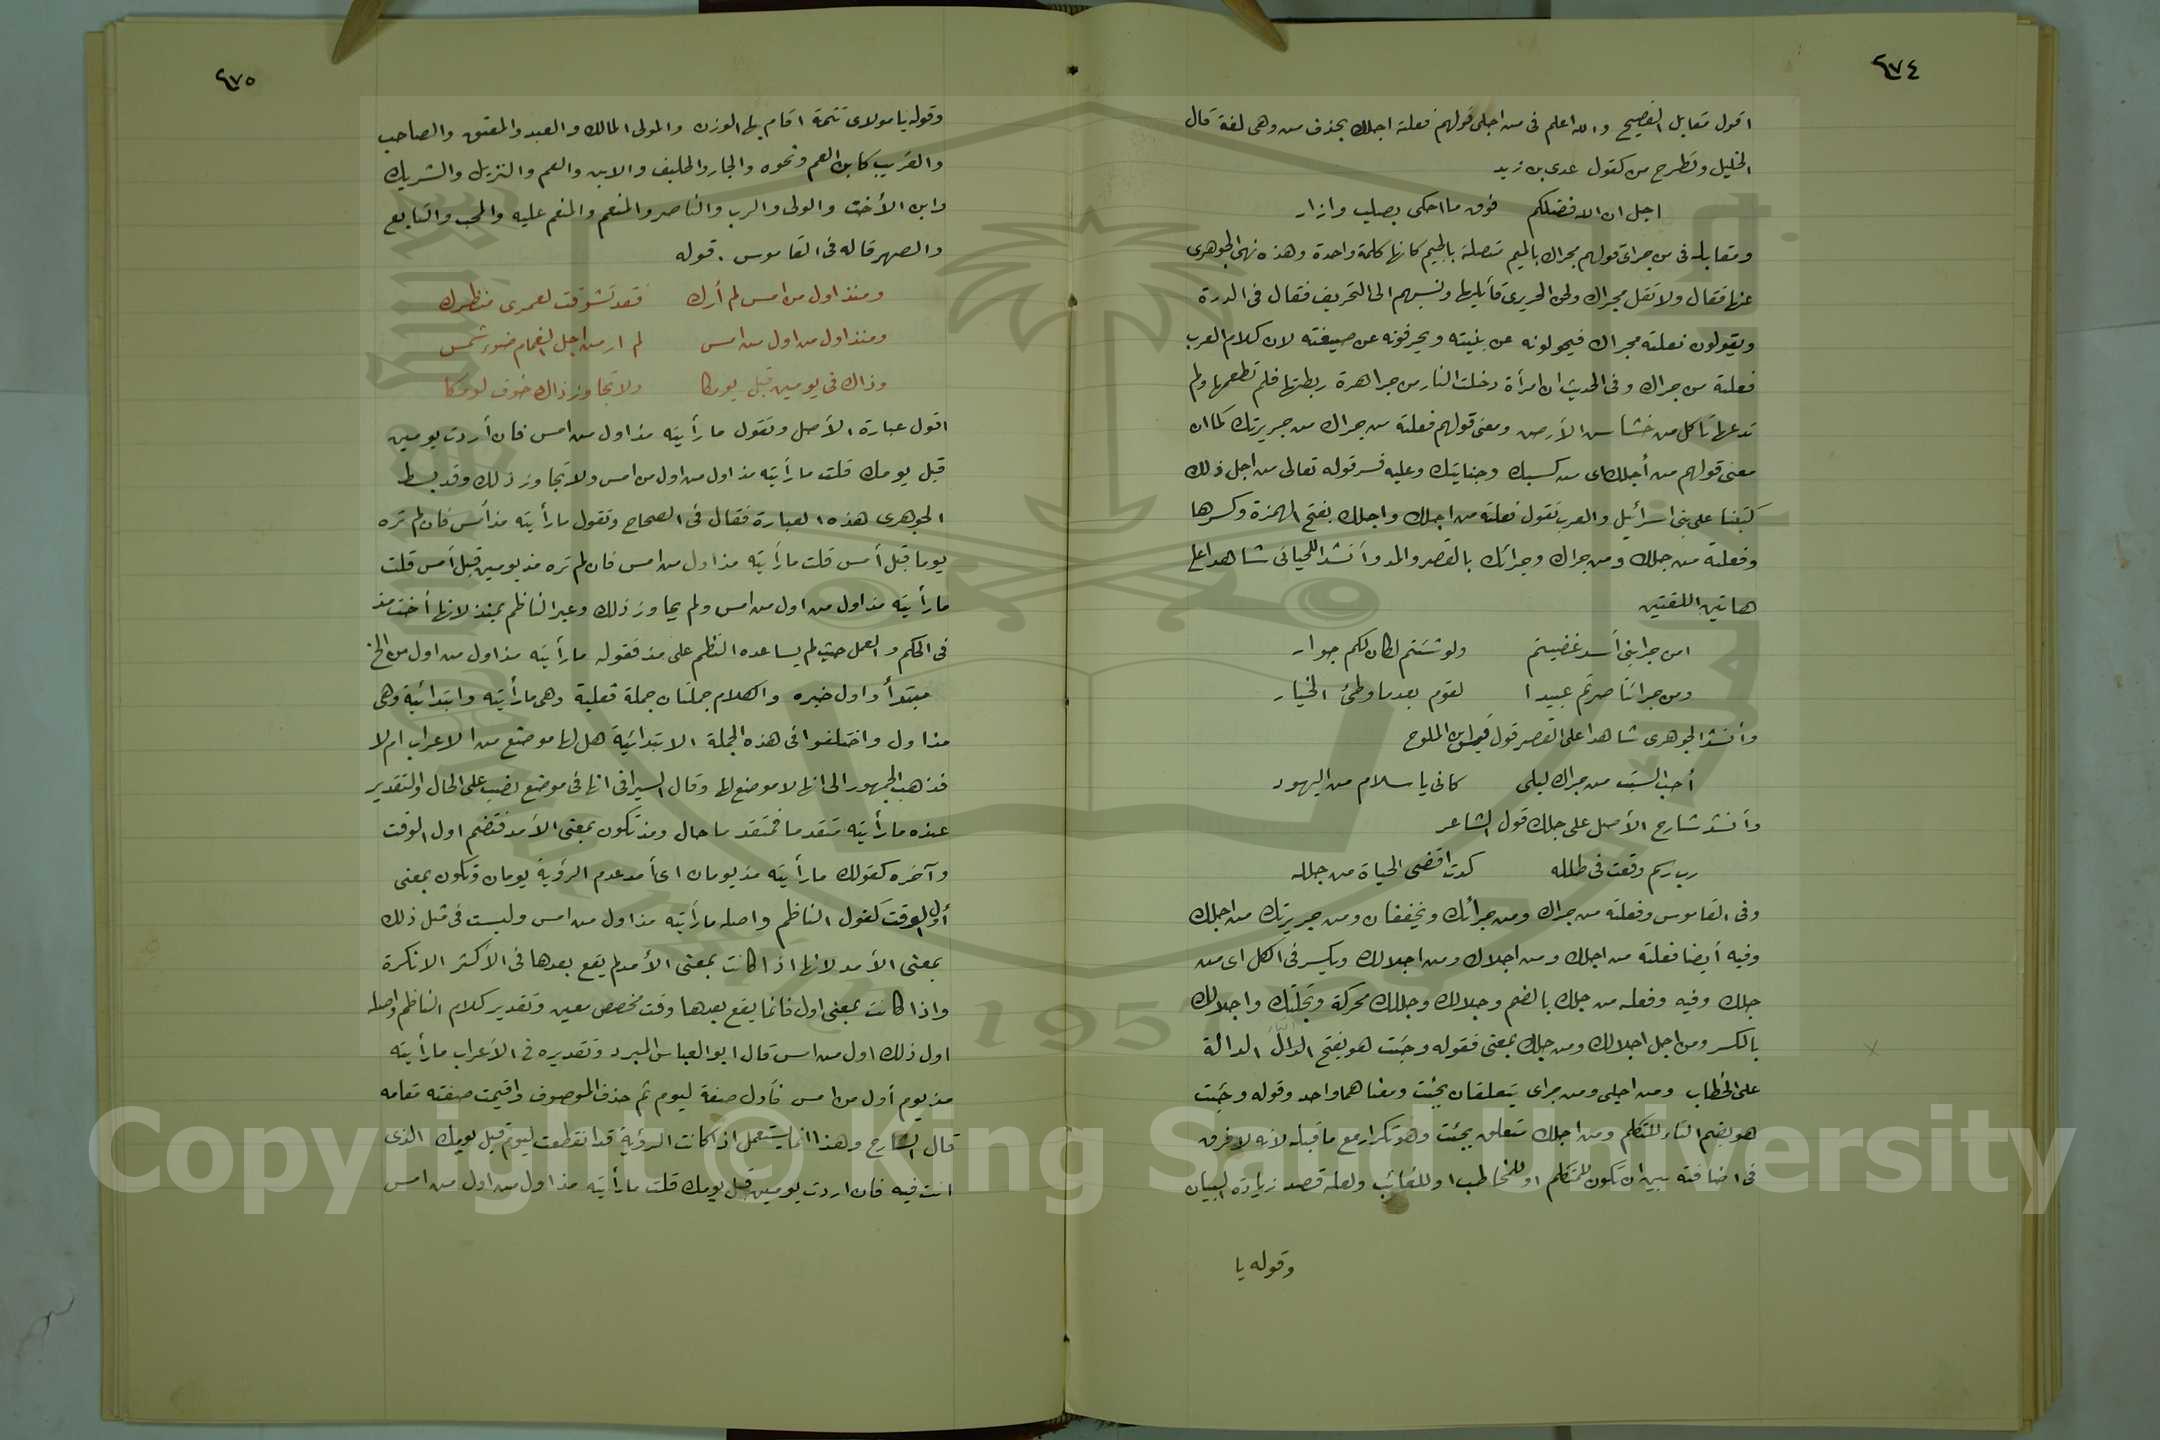 ٦٧٤
اقول مقابل الفصيح والله اعلم فى من اجلى قولهم فعلته اجلك بحذف من وهى لغة قال
الخليل وتطرح من كقول عدى بن زيد
اجل ان الله فضلكم فوق ما احكى بصلب وازار
ومقابله فى من جراى قولهم مجراك بالميم متصلة بالجيم كانها كلمة واحدة وهذه نهى الجوهرى
عنها فقال ولا تقل مجراك ولحن الحريرى قائليها ونسبهم الى التحريف فقال فى الدرة
ويقولون فعلته مجراك فيحولونه عن بنيته ويحرفونه عن صيغته لان كلام العرب
فعلته من جراك وفى الحديث ان امرأة دخلت النار من جرا هرة ربطتها فلم تطعمها ولم
تدعها تاكل من خشاش الأرض ومعنى قولهم فعلته من جراك من جريرتك كما ان
معنى قولهم من أجلك اى من كسبك وجنايتك وعليه فسر قوله تعالى من اجل ذلك
كتبنا على بنى اسرائيل والعرب تقول فعلته من اجلك واجلك بفتح الهمزة وكسرها
وفعلته من جللك ومن جراك وجرائك بالقصر والمد وأنشد اللحيانى شاهدا على
هاتين اللغتين
امن جرا بنى أسد غضبتم ولو شئتم لكان لكم جوار
ومن جرائنا صرتم عبيدا لقوم بعد ما وطئ الخيار
وأنشد الجوهرى شاهدا على القصر قول قيس بن الملوح
أحب السبت من جراك ليلى كانى يا سلام من اليهود
وأنشد شارح الأصل على جللك قول الشاعر
رب ركم وقعت فى طلله كدت اقضى الحياة من جلله
وفى القاموس وفعلته من جراك ومن جرائك ويخففان ومن جريرتك من اجلك
وفيه أيضا فعلته من اجلك ومن اجلاك ومن اجلالك ويكسر فى الكل اى من
جللك وفيه وفعله من جلك بالضم وجلالك وجللك محركة وتجلتك واجلالك
بالكسر ومن اجل اجلالك ومن جللك بمعنى فقوله وجئت هو بفتح الدال الدالة
على الخطاب ومن اجلى ومن جراى يتعلقان بجئت ومعناهما واحد وقوله وجئت
هو بضم التاء للمتكلم ومن اجلك متعلق بجئت وهو تكرار مع ما قبله لأنه لا فرق
فى اضافته بين ان تكون للمتكلم او للمخاطب او للغائب ولعله قصد زيادة البيان
وقوله يا
٦٧٥
وقوله يا مولاى تتمة اقام بها الوزن والمولى المالك والعبد والمعتق والصاحب
والقريب كابن العم ونحوه والجار والحليف والابن والعم والنزيل والشريك
وابن الأخت والولى والرب والناصر والمنعم والمنعم عليه والمحب والتابع
والصهر قاله فى القاموس . قوله
ومنذ اول من امس لم أرك فقد تشوقت لعمرى منظرك
ومنذ اول من اول من امس لم ار من اجل الغمام ضوء شمس
وذاك فى يومين قبل يومكا ولا تجاوز ذاك خوف لومكا
اقول عبارة الأصل وتقول ما رأيته مذ اول من امس فان أردت يومين
قبل يومك قلت ما رأيته مذ اول من اول من امس ولا تجاوز ذلك وقد بسط
الجوهرى هذه العبارة فقال فى الصحاح وتقول ما رأيته مذ أمس فان لم تره
يوما قبل أمس قلت ما رأيته مذ اول من امس فان لم تره مذ يومين قبل أمس قلت
ما رأيته مذ اول من اول من امس ولم يجاوز ذلك وعبر الناظم بمنذ لانها أخت مذ
فى الحكم والعمل حيث لم يساعده النظم على مذ فقوله ما رأيته مذ اول من اول من الخ
مبتدأ واول خبره والكلام جملتان جملة فعلية وهى ما رأيته وابتدائية وهى
مذ اول واختلفوا فى هذه الجملة الابتدائية هل لها موضع من الاعراب ام لا
فذهب الجمهور الى انها لا موضع لها وقال السيرافى انها فى موضع نصب على الحال والتقدير
عنده ما رأيته متقدما فمتقدما حال ومذ تكون بمعنى الأمد فتضم اول الوقت
وآخره كقولك ما رأيته مذ يومان اى أمد عدم الرؤية يومان وتكون بمعنى
أول الوقت كقول الناظم واصله ما رأيته مذ اول من امس وليست فى مثل ذلك
بمعنى الأمد لانها اذا كانت بمعنى الأمد لم يقع بعدها فى الأكثر الا نكرة
واذا كانت بمعنى اول فانما يقع بعدها وقت مخصص معين وتقدير كلام الناظم واصله
اول ذلك اول من امس قال ابو العباس المبرد وتقديره فى الأعراب ما رأيته
مذ يوم أول من امس فأول صفة ليوم ثم حذف الموصوف واقيمت صفته مقامه
قال الشارح وهذا انما يستعمل اذا كانت الرؤية قد انقطعت ليوم قبل يومك الذى
انت فيه فان اردت يومين قبل يومك قلت ما رأيته مذ اول من اول من امس
Copyright © King Saud University
1957